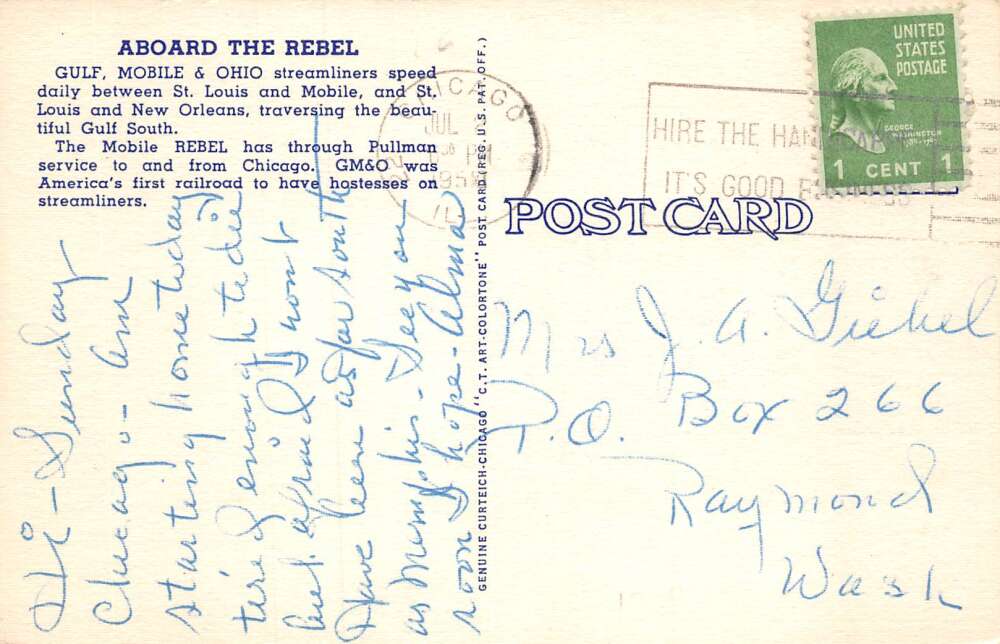 ABOARD THE REBEL
GULF, MOBILE & OHIO streamliners speed
daily between St. Louis and Mobile, and St.
Louis and New Orleans, traversing the beau-
tiful Gulf South.
The Mobile REBEL has through Pullman
service to and from Chicago. GM&O was
America's first railroad to have hostesses on
streamliners.
Hi - Sunday
Chicago - Am
starting home today
tired enough to die
but afraid I wont
Have been as far south
as Memphis - See you
soon I hope - Alma
GENUINE CURTEICH-CHICAGO "C.T. ART-COLORTONE" POST CARD (REG. U.S. PAT. OFF.)
CHICAGO
JUL
PM
195
IL
HIRE THE
IT'S GOOD
UNITED
STATES
POSTAGE
GEORGE
WASHINGTON
1 CENT 1
POST CARD
Mrs J. A. Giebel
P.O. Box 266
Raymond
Wash